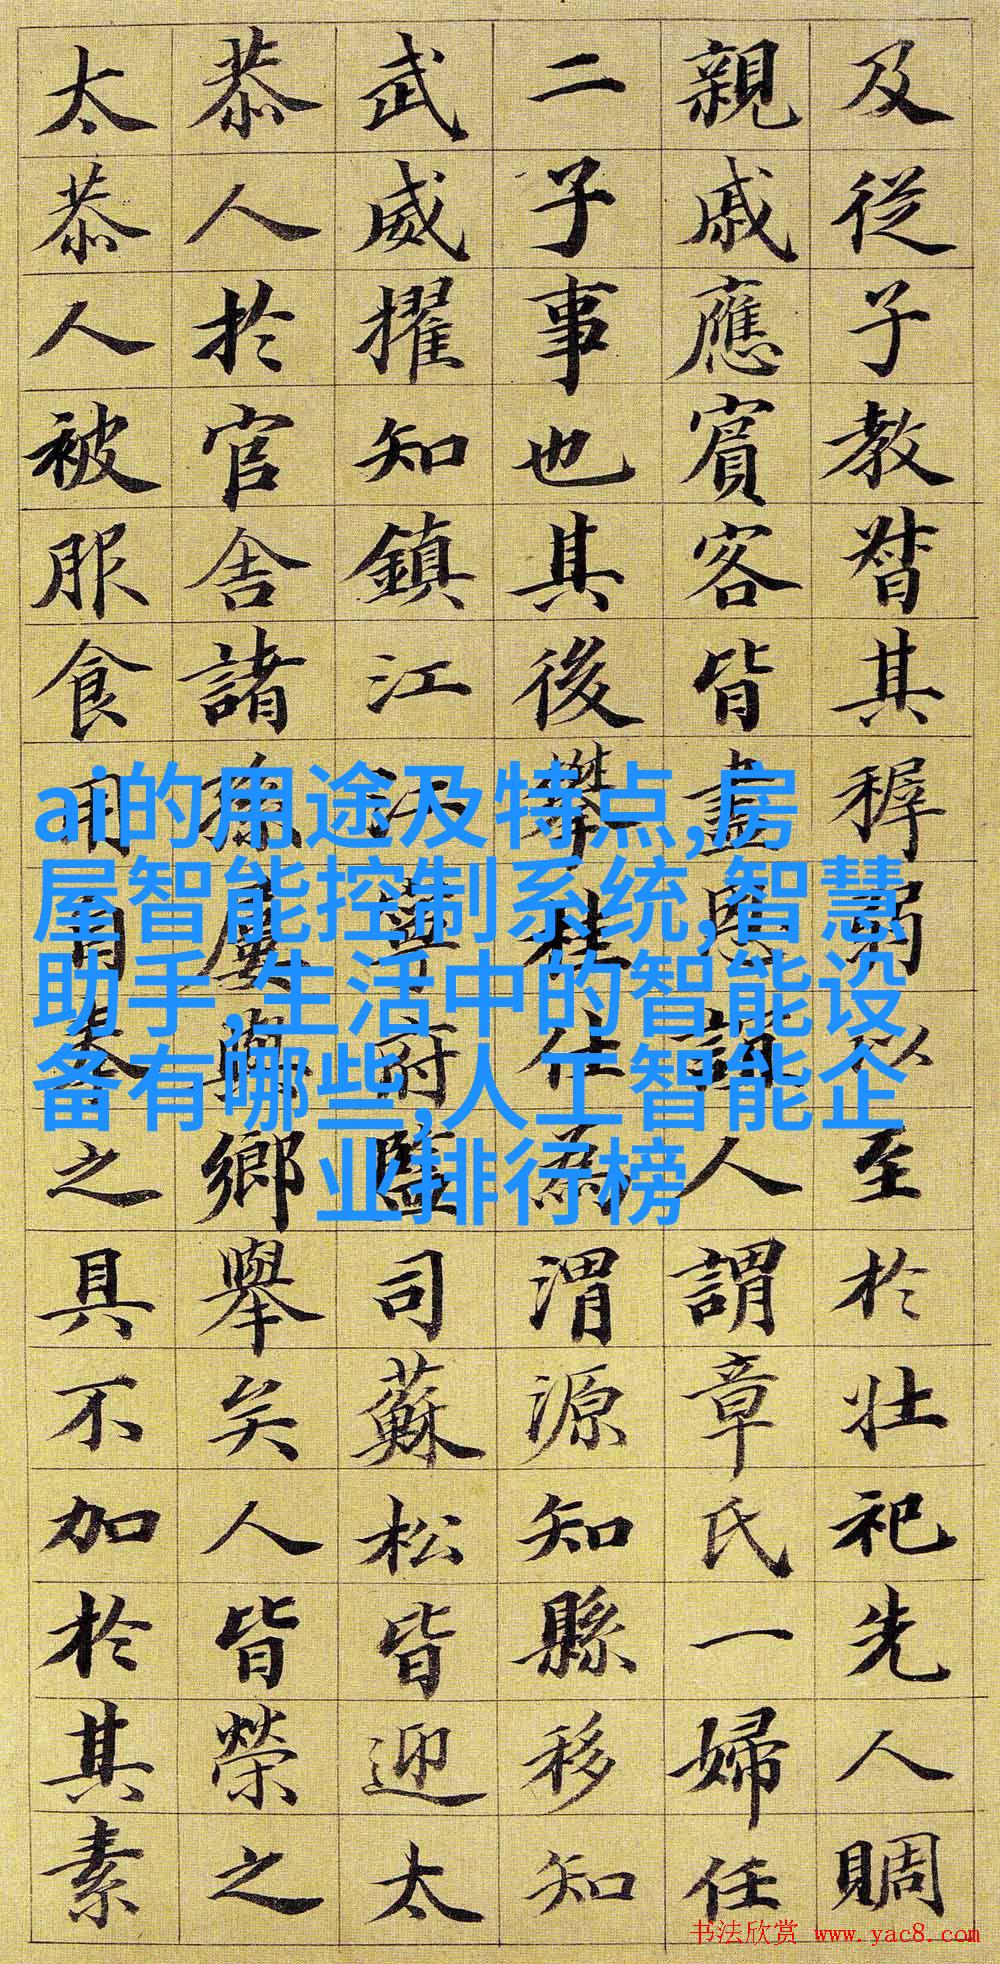 及從子教督其稺弱以至於壯祀先人賙
親戚應賓客皆盡恩人謂章氏一婦任
二子事也其後攀桂仕為渭源知縣移知
武威擢知鎮江江寧府監司蘇松皆迎太
恭人於官舍諸孫屢與鄉舉矣人皆榮之
太恭人被服食用自奉之具不加於其素
ai的用途及特点,房
屋智能控制系统,智慧
助手,生活中的智能设
备有哪些,人工智能企
业排行榜
书法欣赏 www.yac8.com